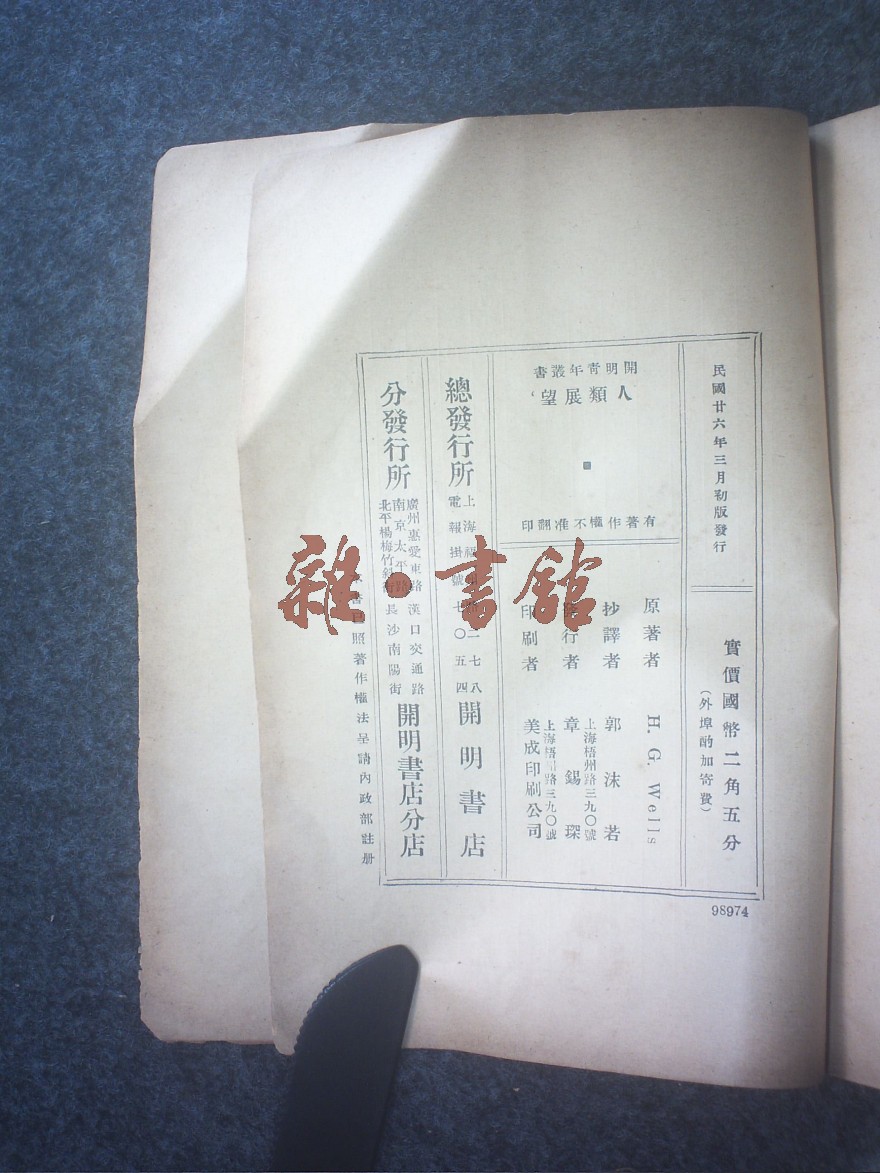 民國廿六年三月初版發行
實價國幣二角五分
(外埠酌加寄費)
開明青年叢書
人類展望
有著作權不准翻印
原著者 H. G. Wells
抄譯者 郭沫若
上海梧州路三九〇號
發行者 章錫琛
上海梧州路三九〇號
印刷者 美成印刷公司
總發行所
上海福州路二七八
電報掛號七〇五四
開明書店
分發行所
廣州惠愛東路 漢口交通路
南京太平路
北平楊梅竹斜街 長沙南陽街
開明書店分店
書已照著作權法呈請內政部註册
98974
雜·書館